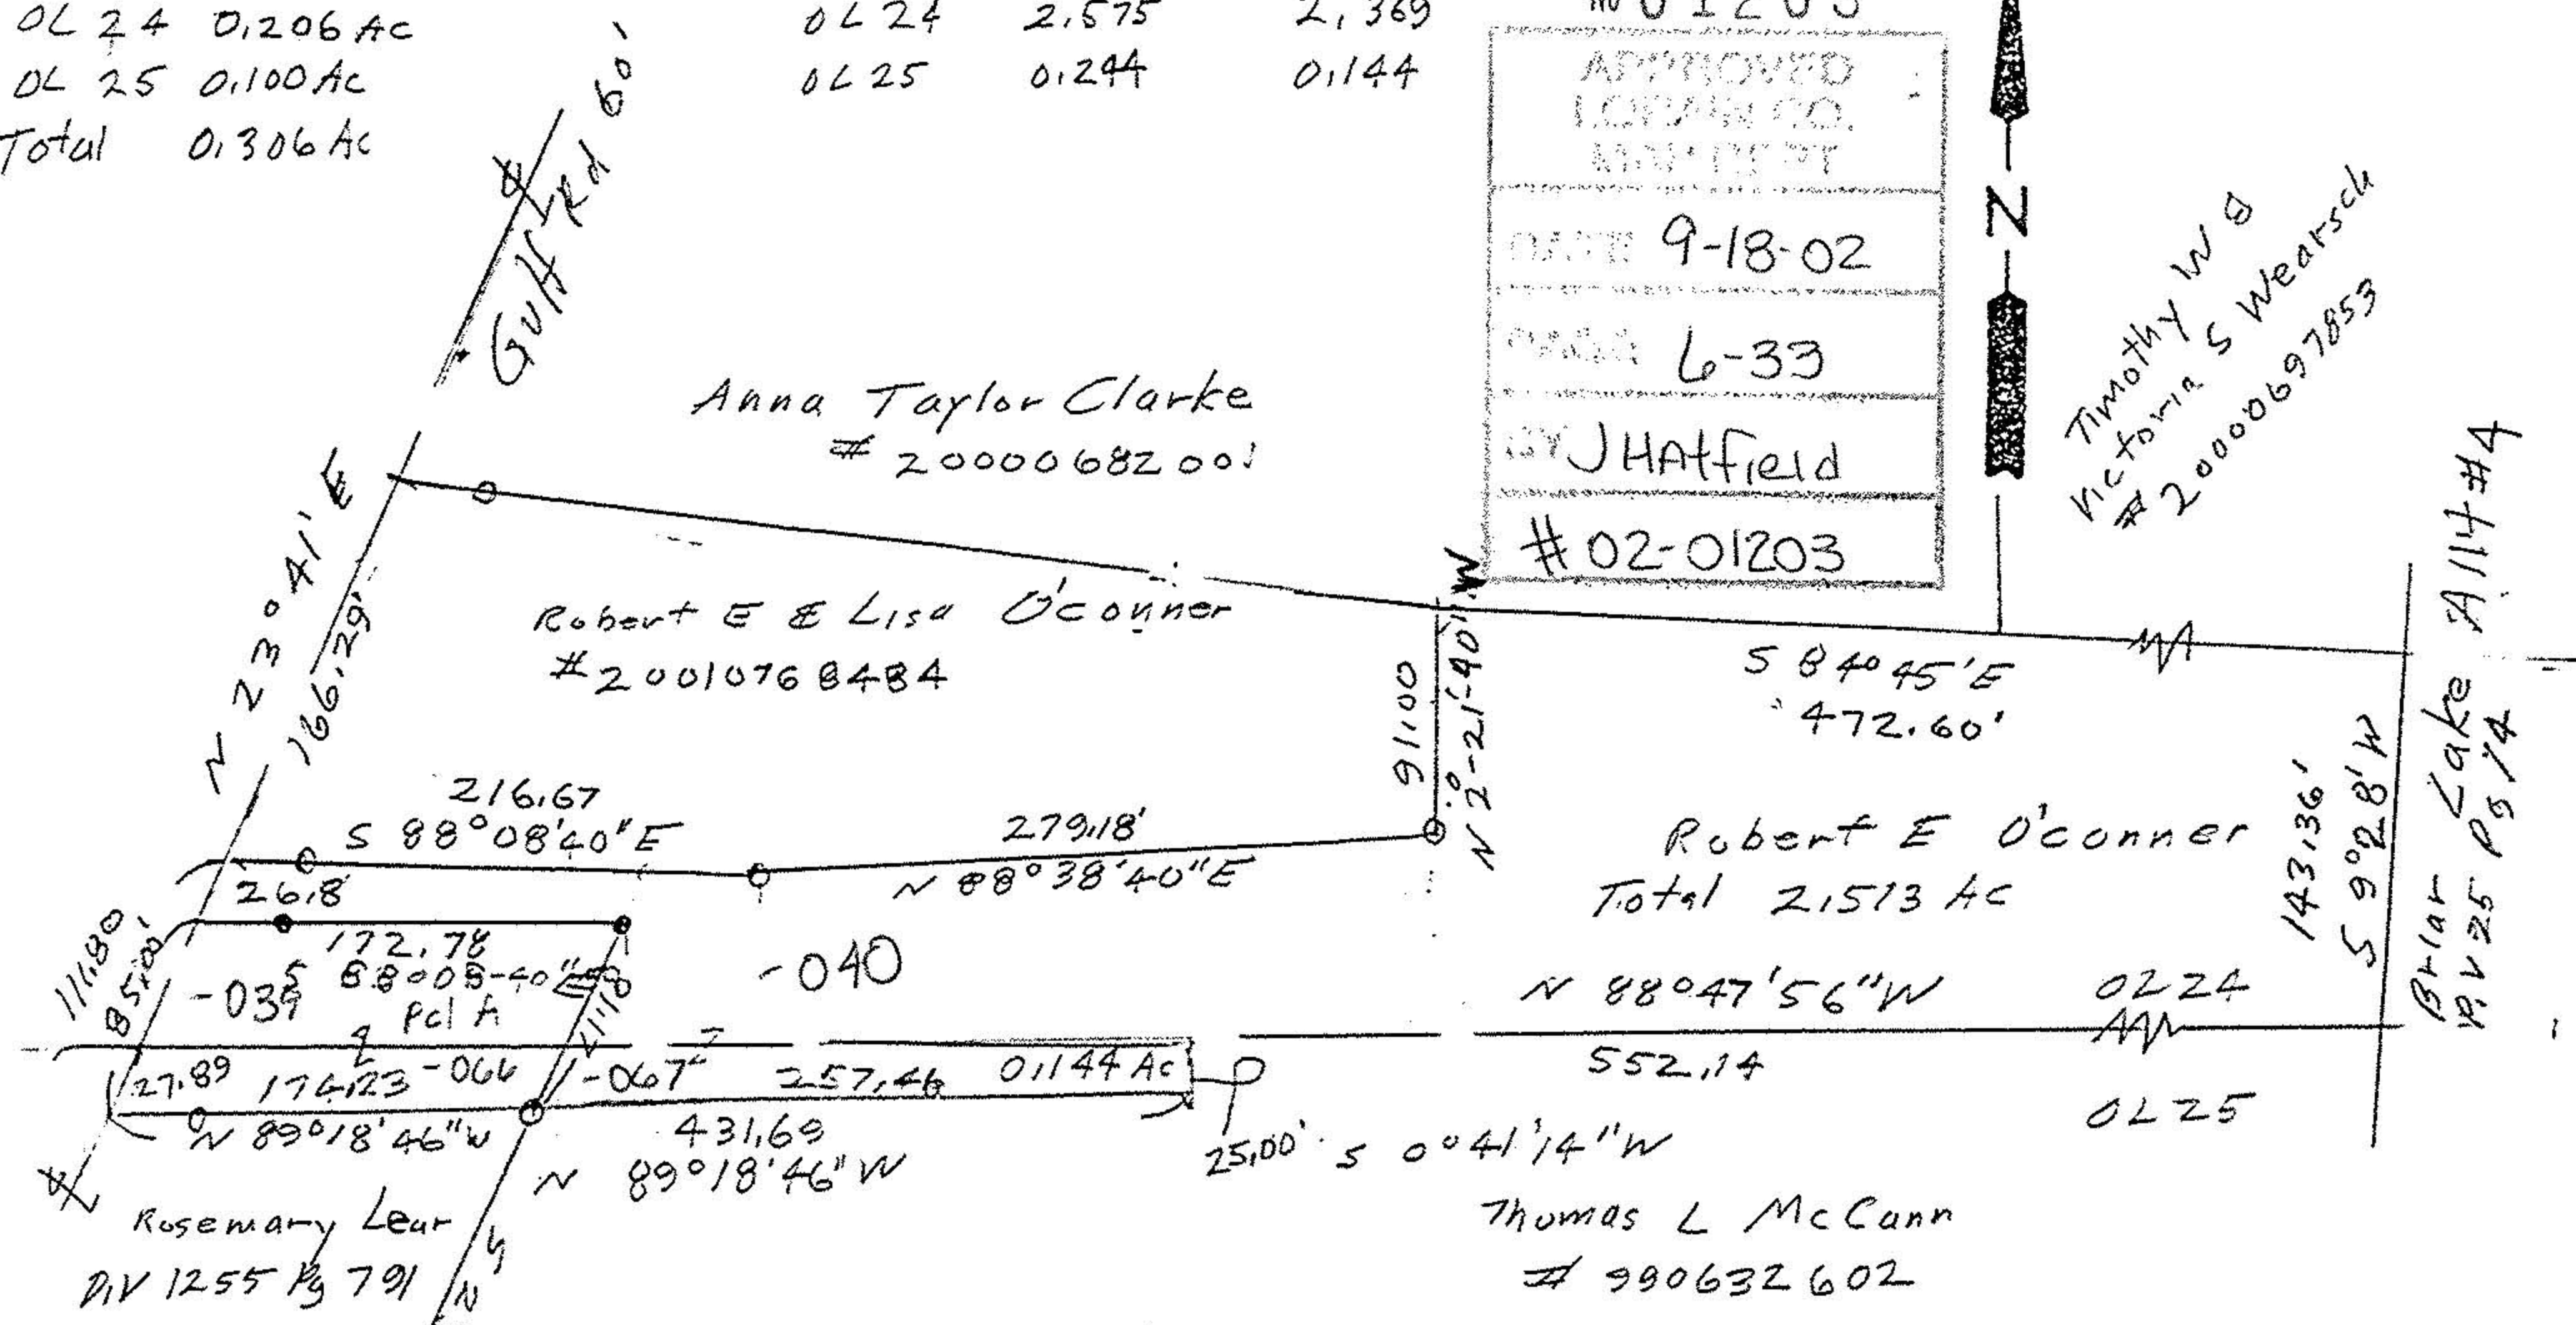 OL 24 0.206 Ac
OL 25 0.100 Ac
Total 0.306 Ac
OL 24 2.575 2.369
OL 25 0.244 0.144
APPROVED
LORAIN CO.
DATE 9-18-02
PAGE 6-33
BY J HAtfield
# 02-01203
N
Gulf Rd 60'
Timothy W &
Victoria S Wearsch
# 20000697853
Anna Taylor Clarke
# 20000682001
N 23° 41' E
166.29'
Robert E & Lisa O'conner
# 20010768484
S 84° 45' E
472.60'
91.00
N 2°-21'-40" W
Briar Lake All #4
P.V 25 Pg 74
143.36'
S 9° 28' W
216.67
S 88° 08' 40" E
279.18'
N 88° 38' 40" E
26.8
Robert E O'conner
Total 2.513 Ac
111.80
85.00'
172.78
S 88° 08-40" E
-039
Pcl A
-040
N 88° 47' 56" W
OL 24
552.14
OL 25
27.89
174.23
-066
-067
257.46
0.144 Ac
N 89° 18' 46" W
431.69
N 89° 18' 46" W
25.00' S 0° 41' 14" W
Rosemary Lear
D.V 1255 Pg 791
Thomas L McCann
# 990632602